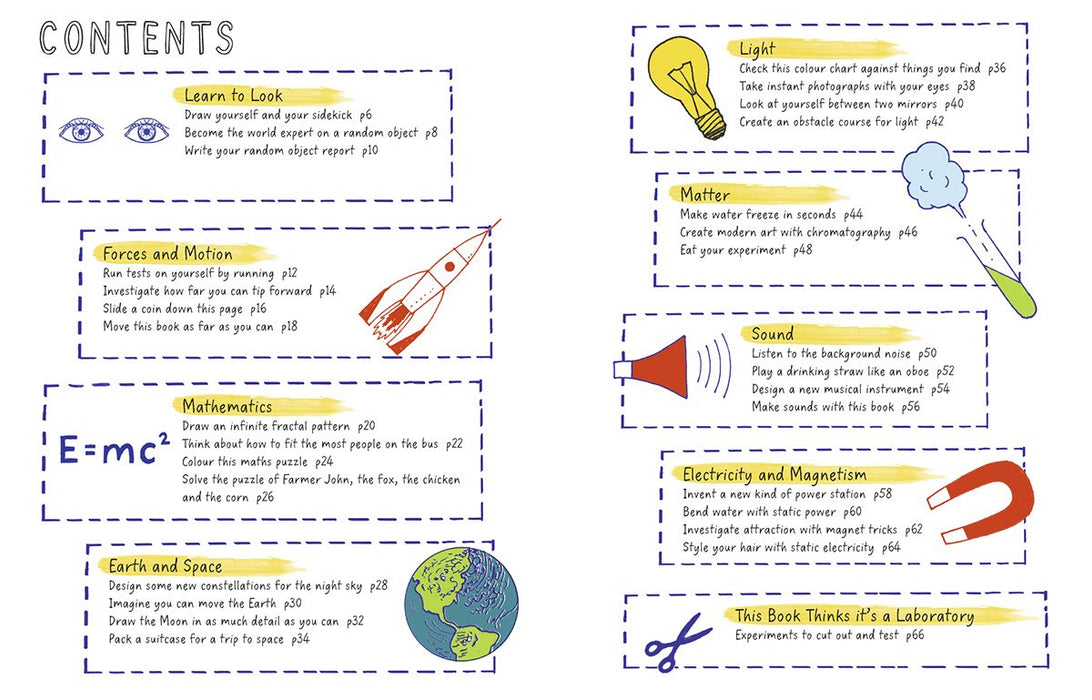 CONTENTS
Learn to Look
Draw yourself and your sidekick p6
Become the world expert on a random object p8
Write your random object report p10
Forces and Motion
Run tests on yourself by running p12
Investigate how far you can tip forward p14
Slide a coin down this page p16
Move this book as far as you can p18
Mathematics
E=mc²
Draw an infinite fractal pattern p20
Think about how to fit the most people on the bus p22
Colour this maths puzzle p24
Solve the puzzle of Farmer John, the fox, the chicken
and the corn p26
Earth and Space
Design some new constellations for the night sky p28
Imagine you can move the Earth p30
Draw the Moon in as much detail as you can p32
Pack a suitcase for a trip to space p34
Light
Check this colour chart against things you find p36
Take instant photographs with your eyes p38
Look at yourself between two mirrors p40
Create an obstacle course for light p42
Matter
Make water freeze in seconds p44
Create modern art with chromatography p46
Eat your experiment p48
Sound
Listen to the background noise p50
Play a drinking straw like an oboe p52
Design a new musical instrument p54
Make sounds with this book p56
Electricity and Magnetism
Invent a new kind of power station p58
Bend water with static power p60
Investigate attraction with magnet tricks p62
Style your hair with static electricity p64
This Book Thinks it's a Laboratory
Experiments to cut out and test p66